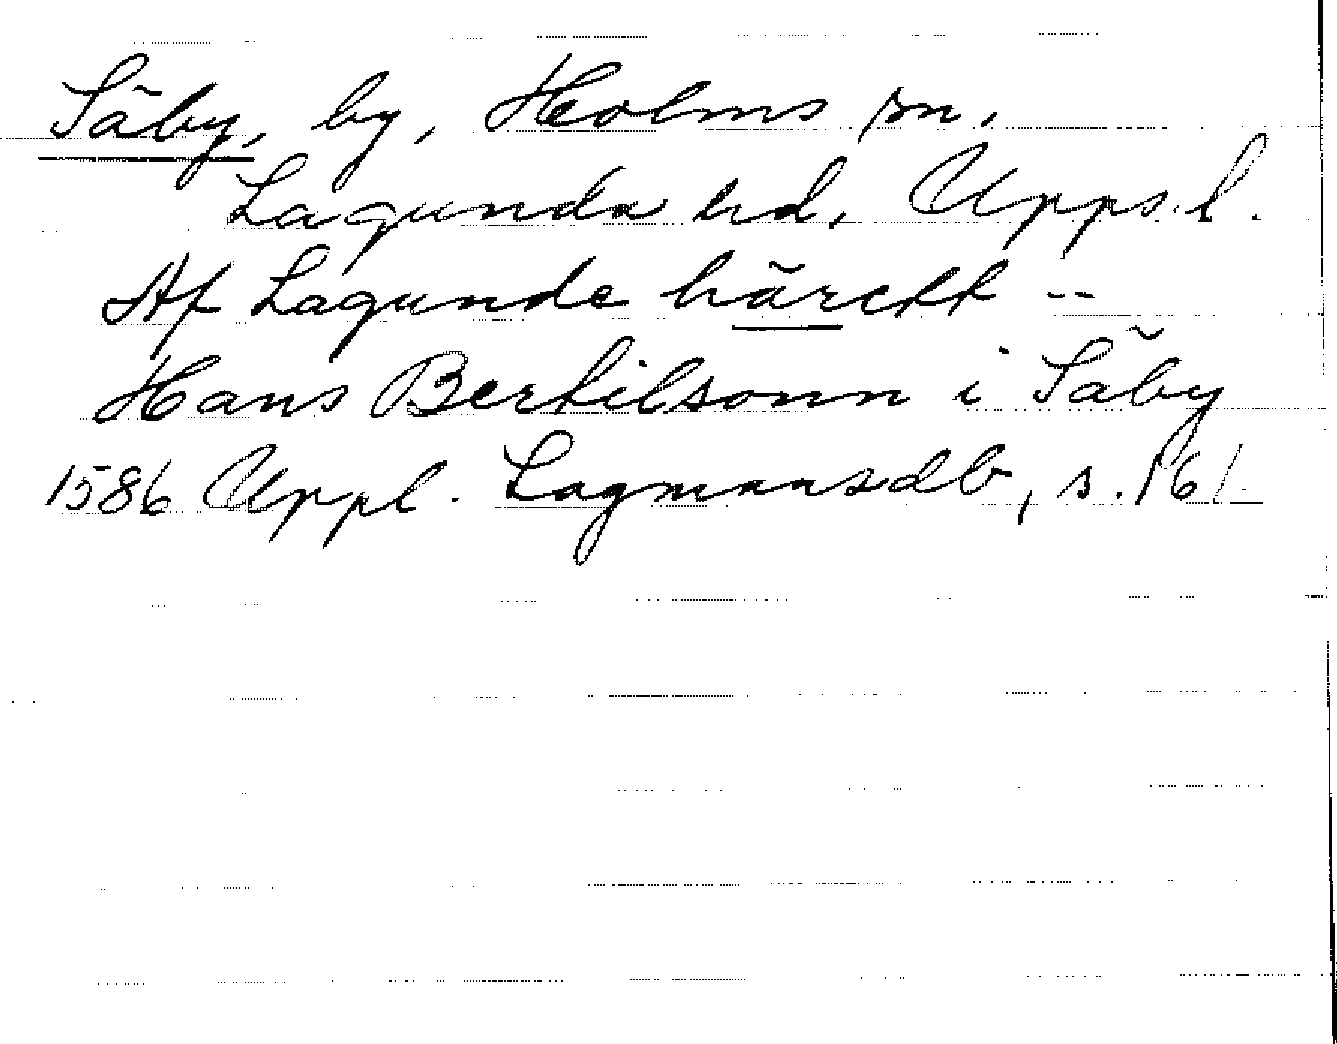 Säby, by, Holms sn.
Lagunda hd, Upps. l.
Af Lagunde härett --
Hans Bertilsonn i Säby
1586 Uppl. Lagmansdb, s. 161